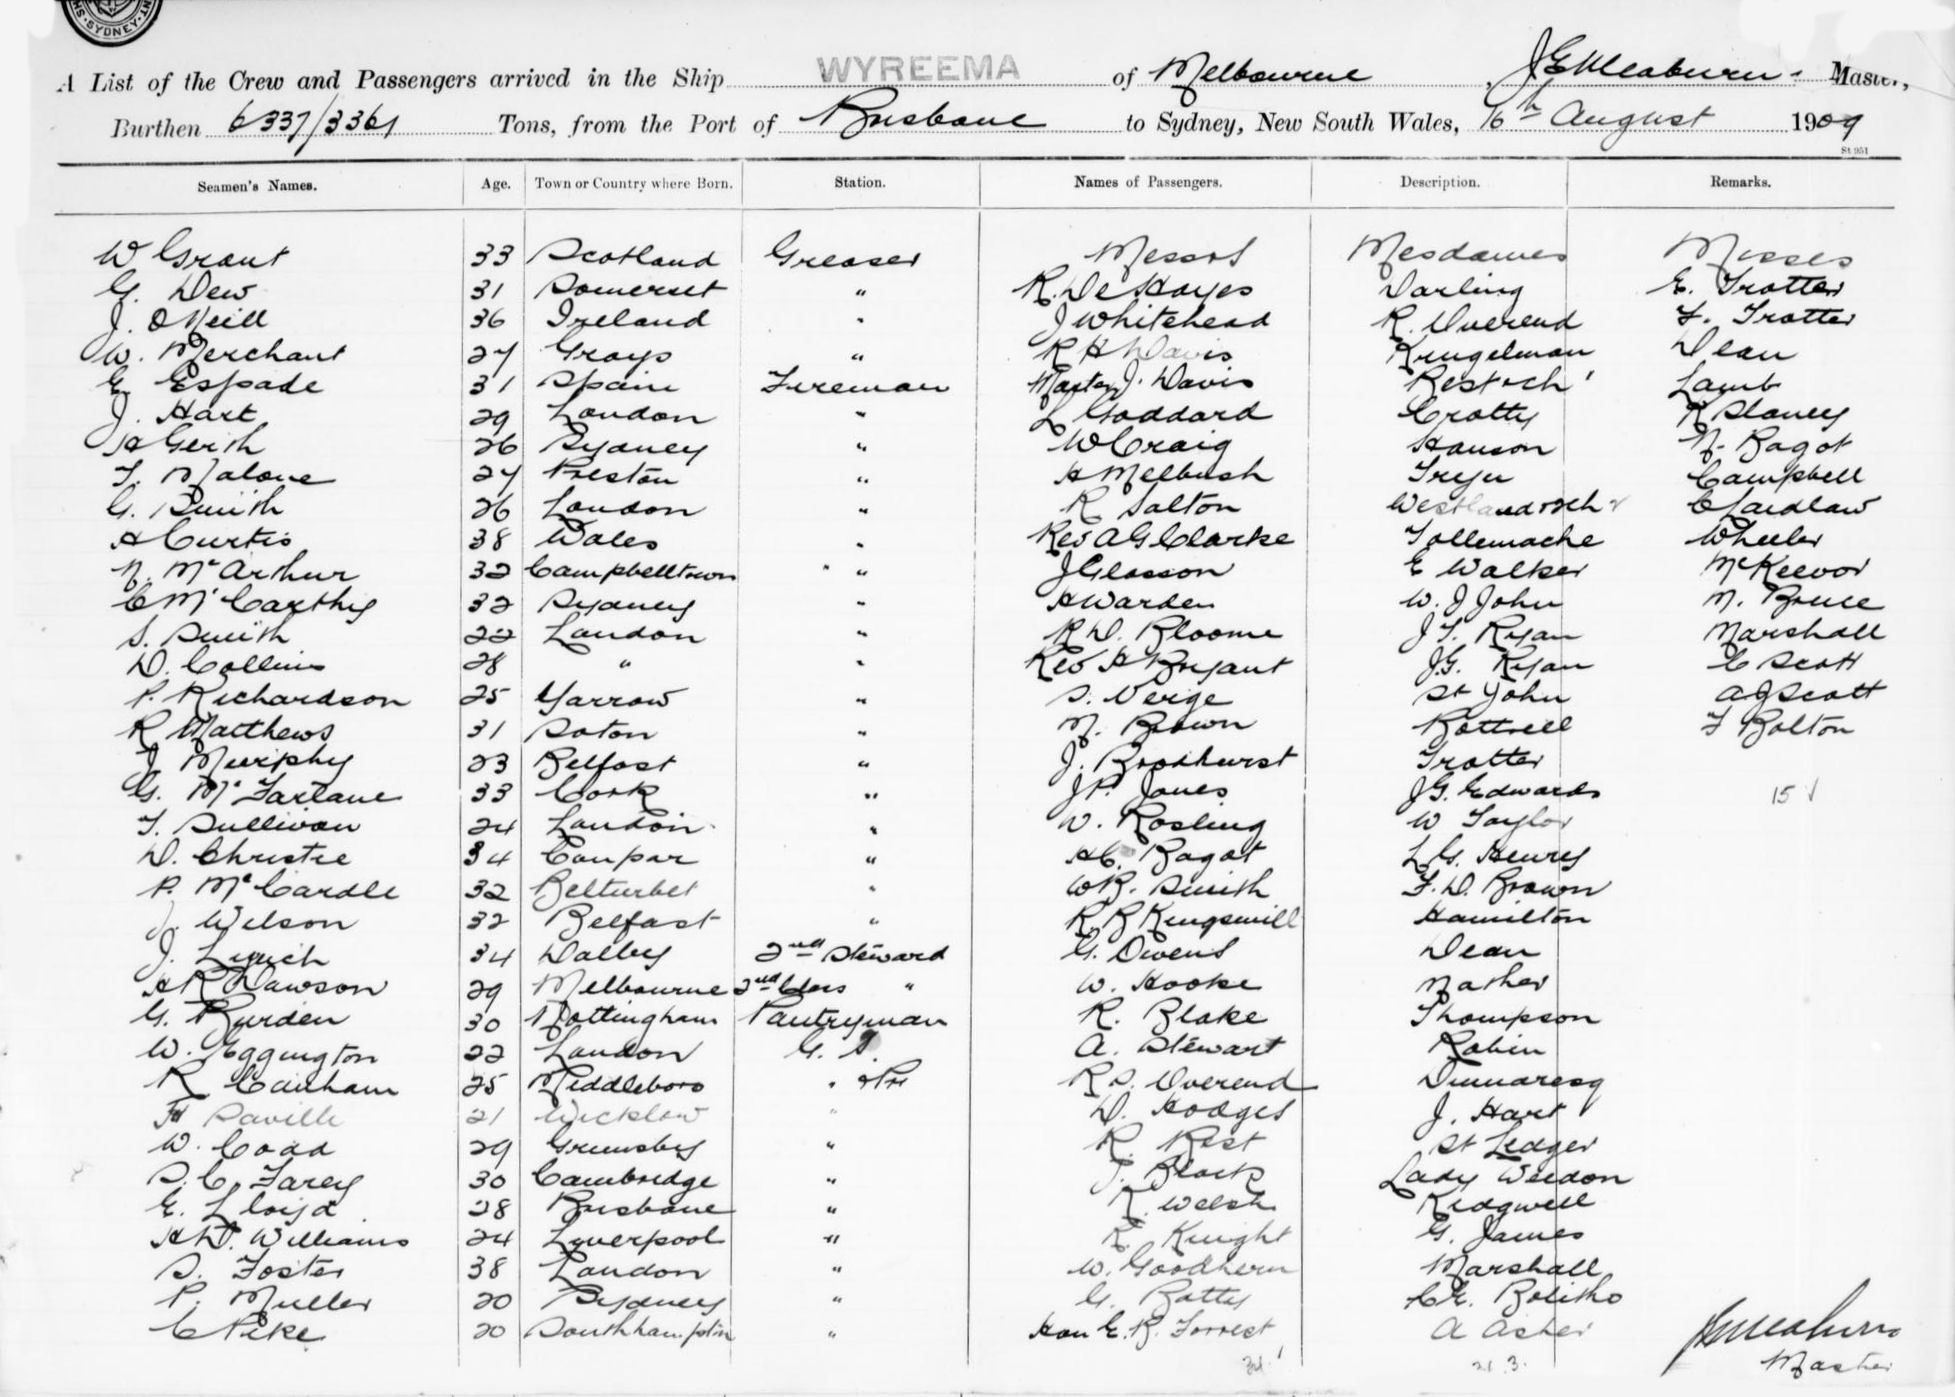 SYDNEY
A List of the Crew and Passengers arrived in the Ship WYREEMA of Melbourne, Master,
Burthen 6337/3361 Tons, from the Port of Brisbane to Sydney, New South Wales, 16th August 1909
St 951
Seamen's Names. Age. Town or Country where Born. Station. Names of Passengers. Description. Remarks.
W Grant 33 Scotland Greaser Messrs Mesdames Misses
G. Dew 31 Somerset " R. De Hayes Darling E. Trotter
J. O'Neill 36 Ireland " J Whitehead R. Overend F. Trotter
W. Merchant 27 Grays " R H Davis Krugelman Dean
E. Espade 31 Spain Fireman Master J. Davis Lamb
J. Hart 29 London " L Goddard Crotty R Slaney
A Gerth 26 Sydney " W Craig Hanson N. Bagot
T. Malone 27 Preston " H Melbush Campbell
G. Smith 26 London " R Salton C Laidlaw
A Curtis 38 Wales " Rev A G Clarke Tollemache Wheeler
N. McArthur 32 Campbelltown " J Glasson E Walker McKeevor
C McCarthy 32 Sydney " A Warden W. J John M. Bruce
S. Smith 22 London " R D. Bloome J T. Ryan Marshall
D. Collins 28 " " Rev H Bryant J. G. Ryan C Scott
P. Richardson 25 Yarrow " S. Verge St John A J Scott
R Matthews 31 Soton " M. Brown Bottrell F Bolton
J Murphy 23 Belfast " J. Broadhurst Trotter
G. McFarlane 33 Cork " J P. Jones J G. Edwards 15
T. Sullivan 24 London " W. Rosling W Taylor
D. Christie 34 Coupar " H C. Bagot L G. Henry
P. McCardle 32 Belturbet " W R. Smith F. D. Brown
J. Wilson 32 Belfast " R. B Kingsmill Hamilton
J. Lynch 34 Dalby 2nd Steward G. Owens Dean
H R Dawson 29 Melbourne 2nd Class " W. Hooke Mather
G. Burden 30 Nottingham Pantryman R. Blake Thompson
W. Eggington 22 London G. S. A. Stewart Robin
R Canham 25 Middleboro " R S. Overend Dumaresq
Saville 21 Wicklow " D. Hodges J. Hart
W. Codd 29 Grimsby " R. Rest St Ledger
S. C. Farey 30 Cambridge " J. Black Lady Weedon
E. Lloyd 28 Brisbane " R. Welsh Ridgwell
H D. Williams 24 Lyverpool " R. Knight G. James
S. Foster 38 London " W. Goodhern Marshall
P. Muller 20 Sydney " G. Batty C E. Bolitho
C Pike 20 Southhampton " Hon E. B. Forrest A Asher
34
Master